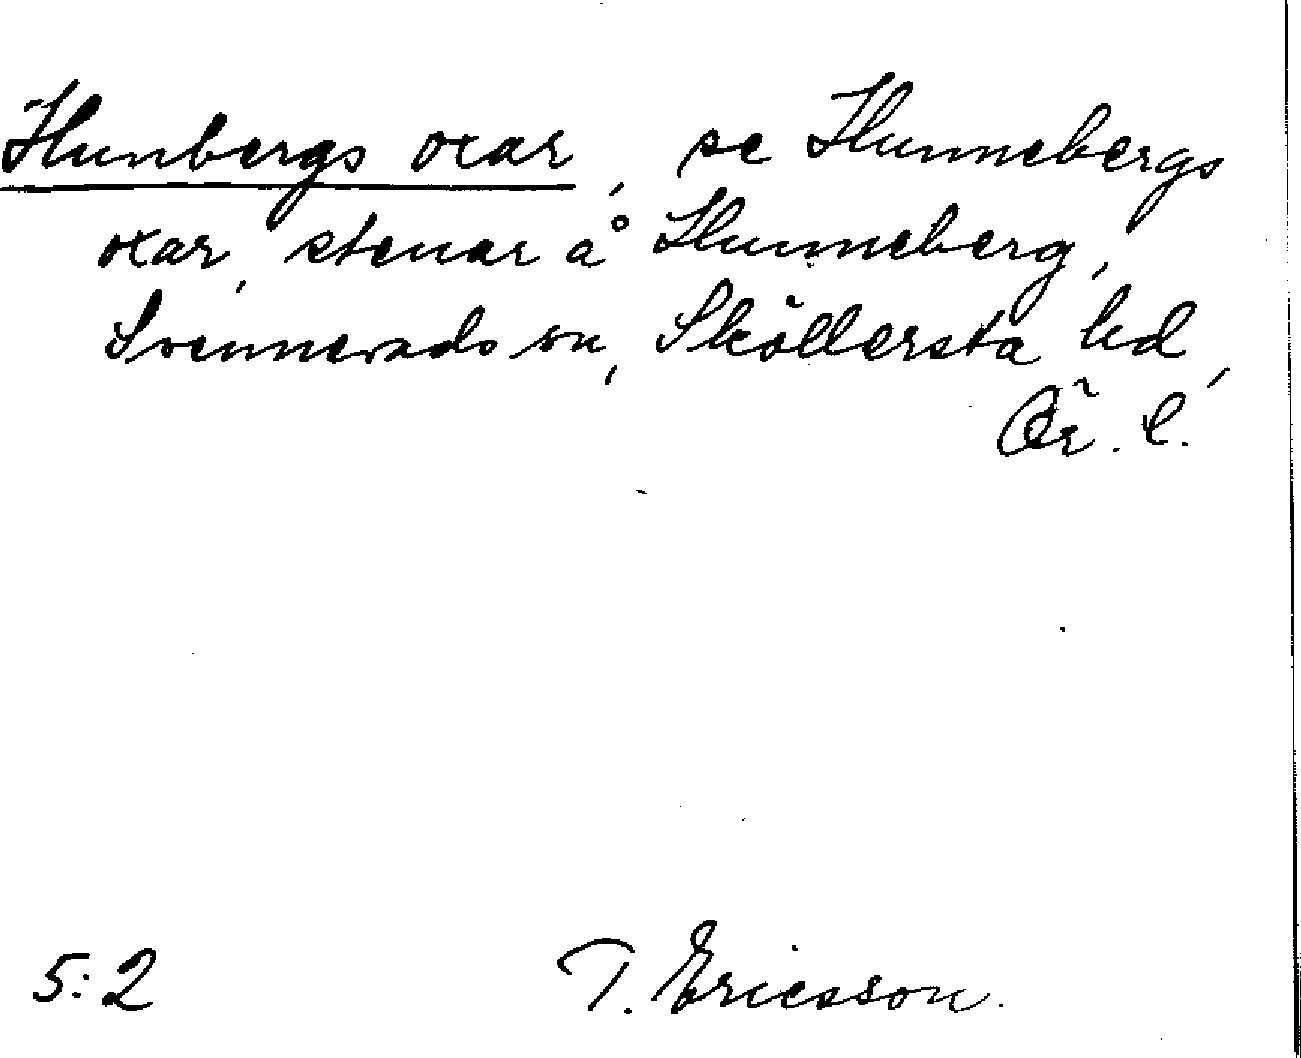 Hunbergs oxar, se Hunnebergs
oxar, stenar å Hunneberg,
Svennevads sn, Sköllersta hd,
Ör. l.
5:2 T. Ericsson.